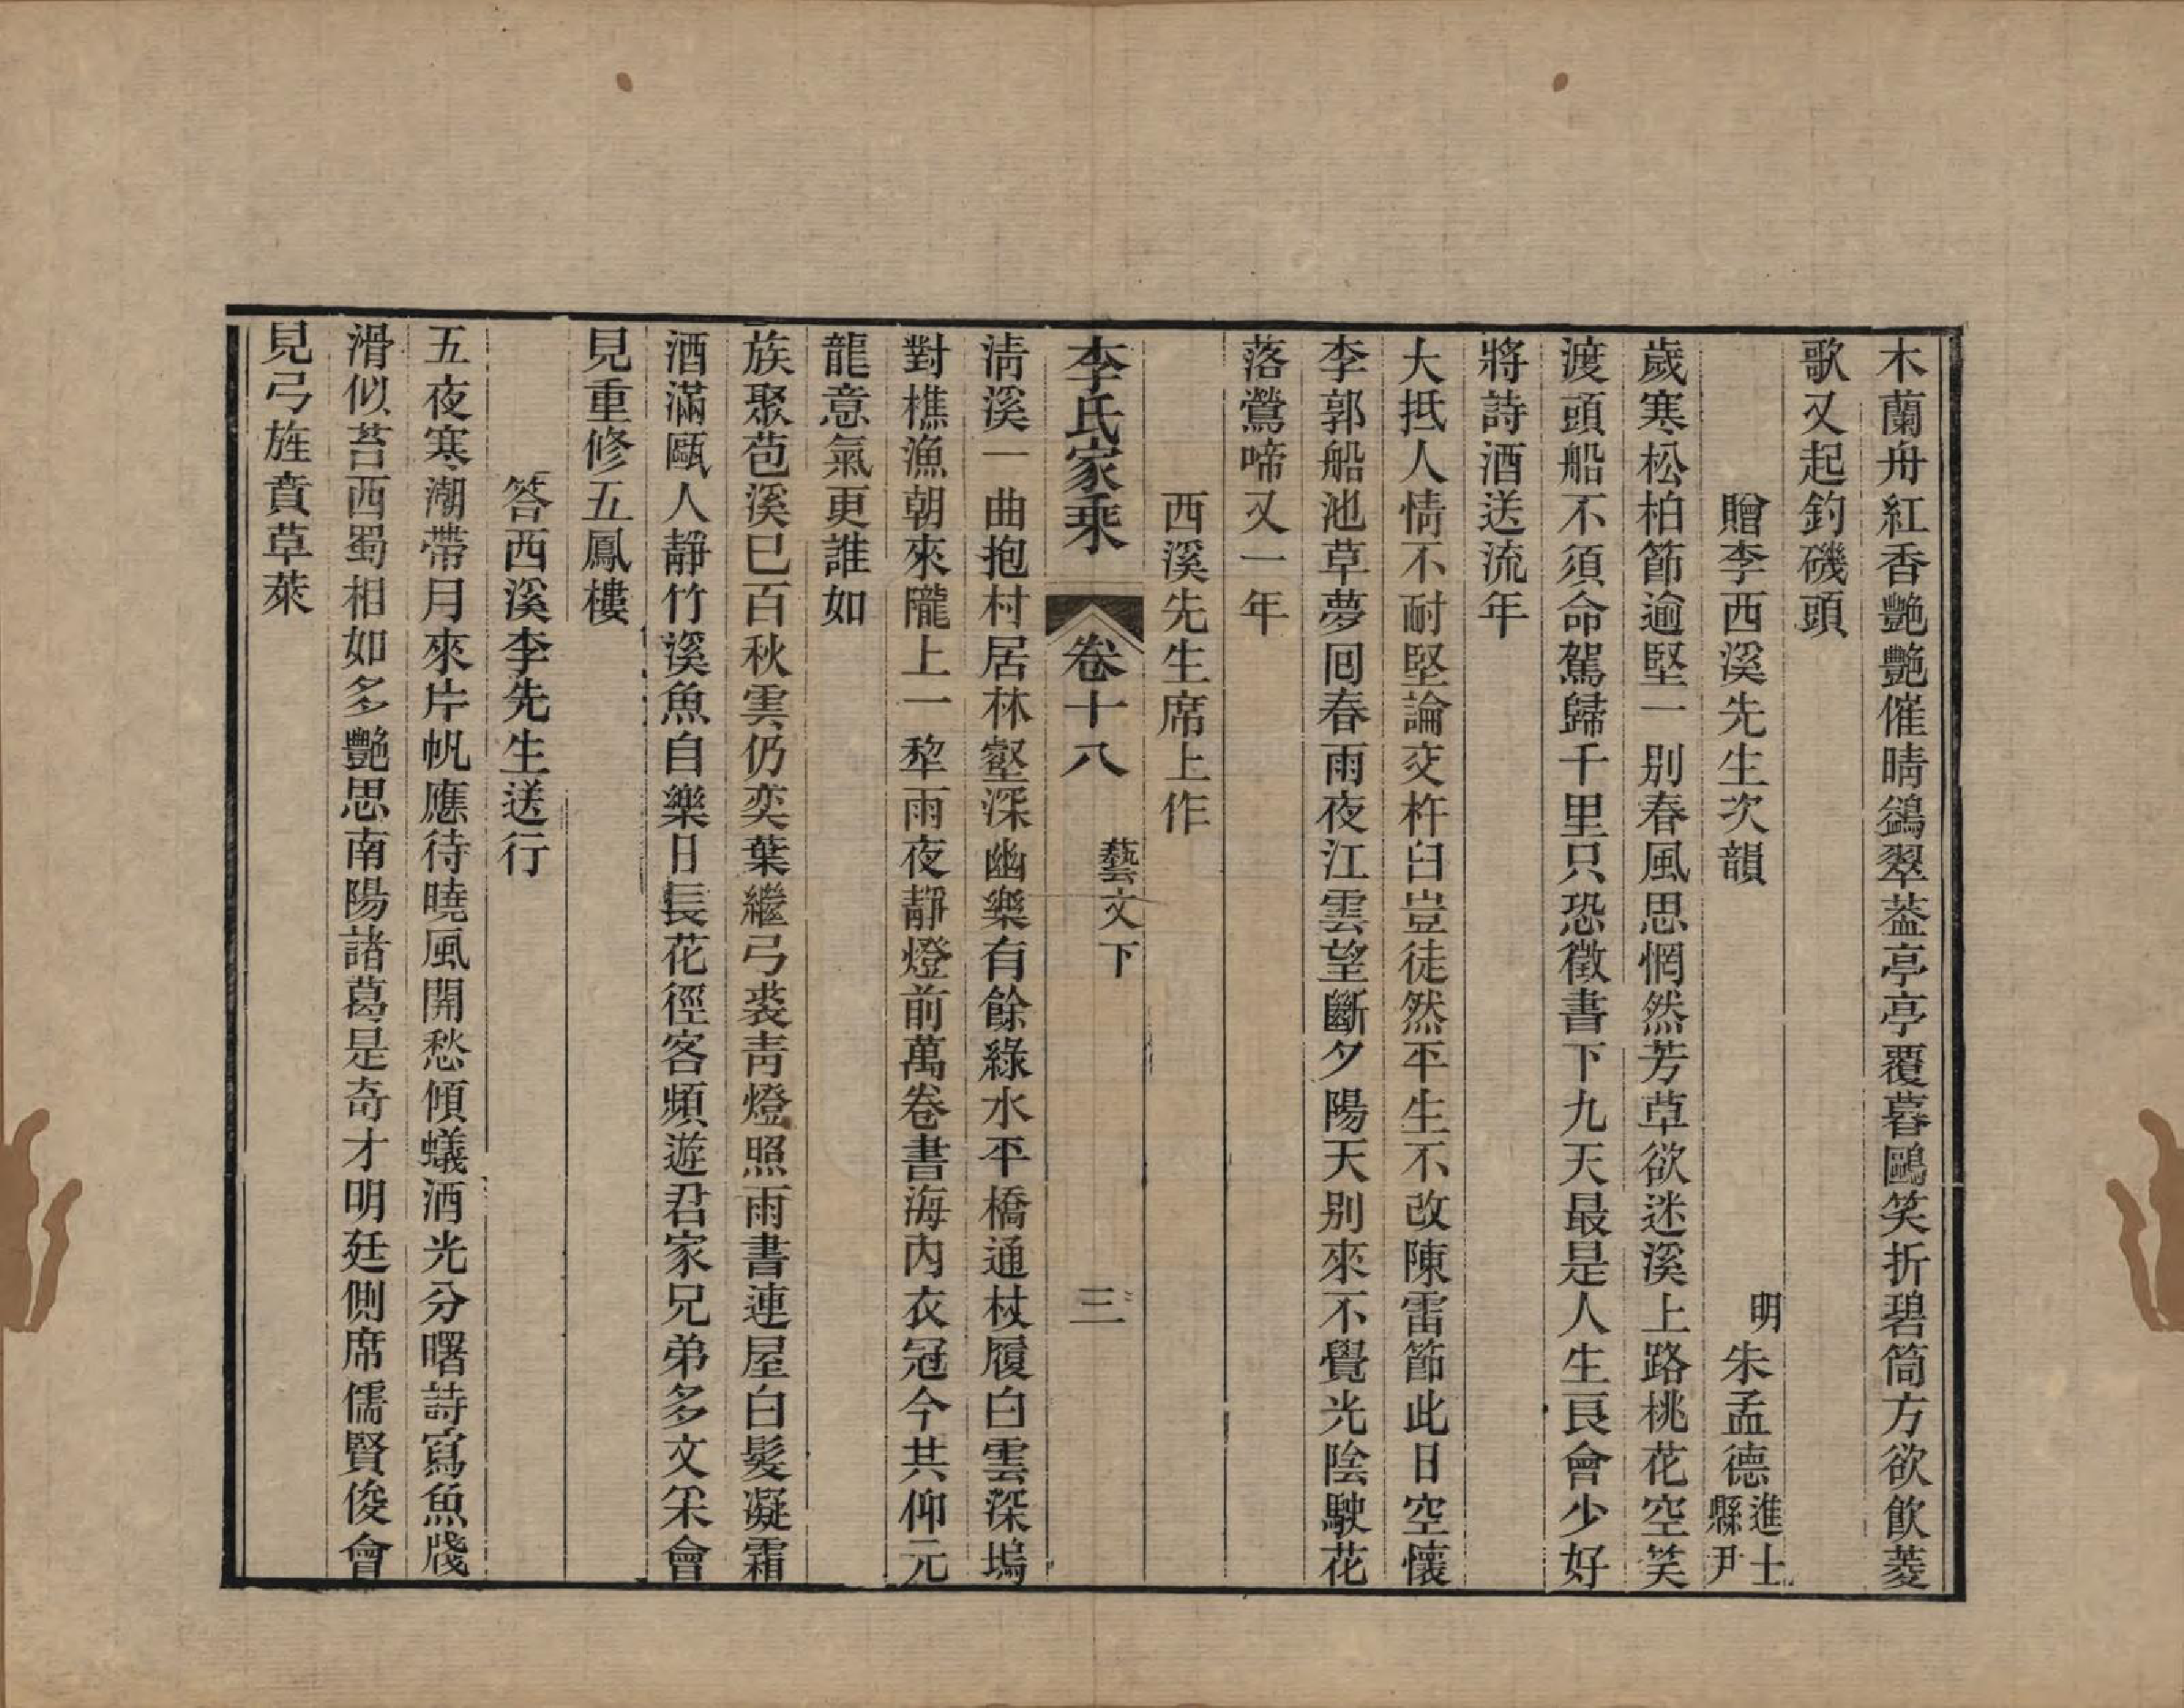 木蘭舟紅香艷艷催晴鷁翠葢亭亭覆暮鷗笑折碧筒方欲飲菱
歌又起釣磯頭
贈李西溪先生次韻　明　朱孟德進士縣尹
歲寒松柏節逾堅一別春風思惘然芳草欲迷溪上路桃花空笑
渡頭船不須命駕歸千里只恐徵書下九天最是人生良會少好
將詩酒送流年
大抵人情不耐堅論交杵臼豈徒然平生不改陳雷節此日空懷
李郭船池草夢囘春雨夜江雲望斷夕陽天別來不覺光陰駛花
落鶯啼又一年
西溪先生席上作
李氏家乘　卷十八　藝文下　三
淸溪一曲抱村居林壑深幽樂有餘綠水平橋通杖履白雲深塢
對樵漁朝來隴上一犂雨夜靜燈前萬卷書海內衣冠今共仰元
龍意氣更誰如
族聚苞溪已百秋雲仍奕葉繼弓裘靑燈照雨書連屋白髮凝霜
酒滿甌人靜竹溪魚自樂日長花徑客頻遊君家兄弟多文采會
見重修五鳳樓
答西溪李先生送行
五夜寒潮帶月來片帆應待曉風開愁傾蟻酒光分曙詩寫魚牋
滑似苔西蜀相如多艷思南陽諸葛是奇才明廷側席儒賢俊會
見弓旌賁草萊